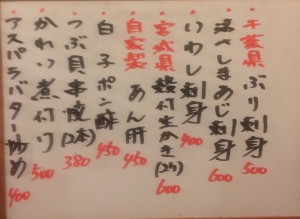 千葉県 ぶり刺身 500
活〆しまあじ刺身 600
いわし刺身 400
宮城県 殻付生かき(2ケ) 600
自家製 あん肝 450
白子ポン酢 450
つぶ貝串焼(2本) 380
かれい煮付け 500
アスパラバター炒め 400